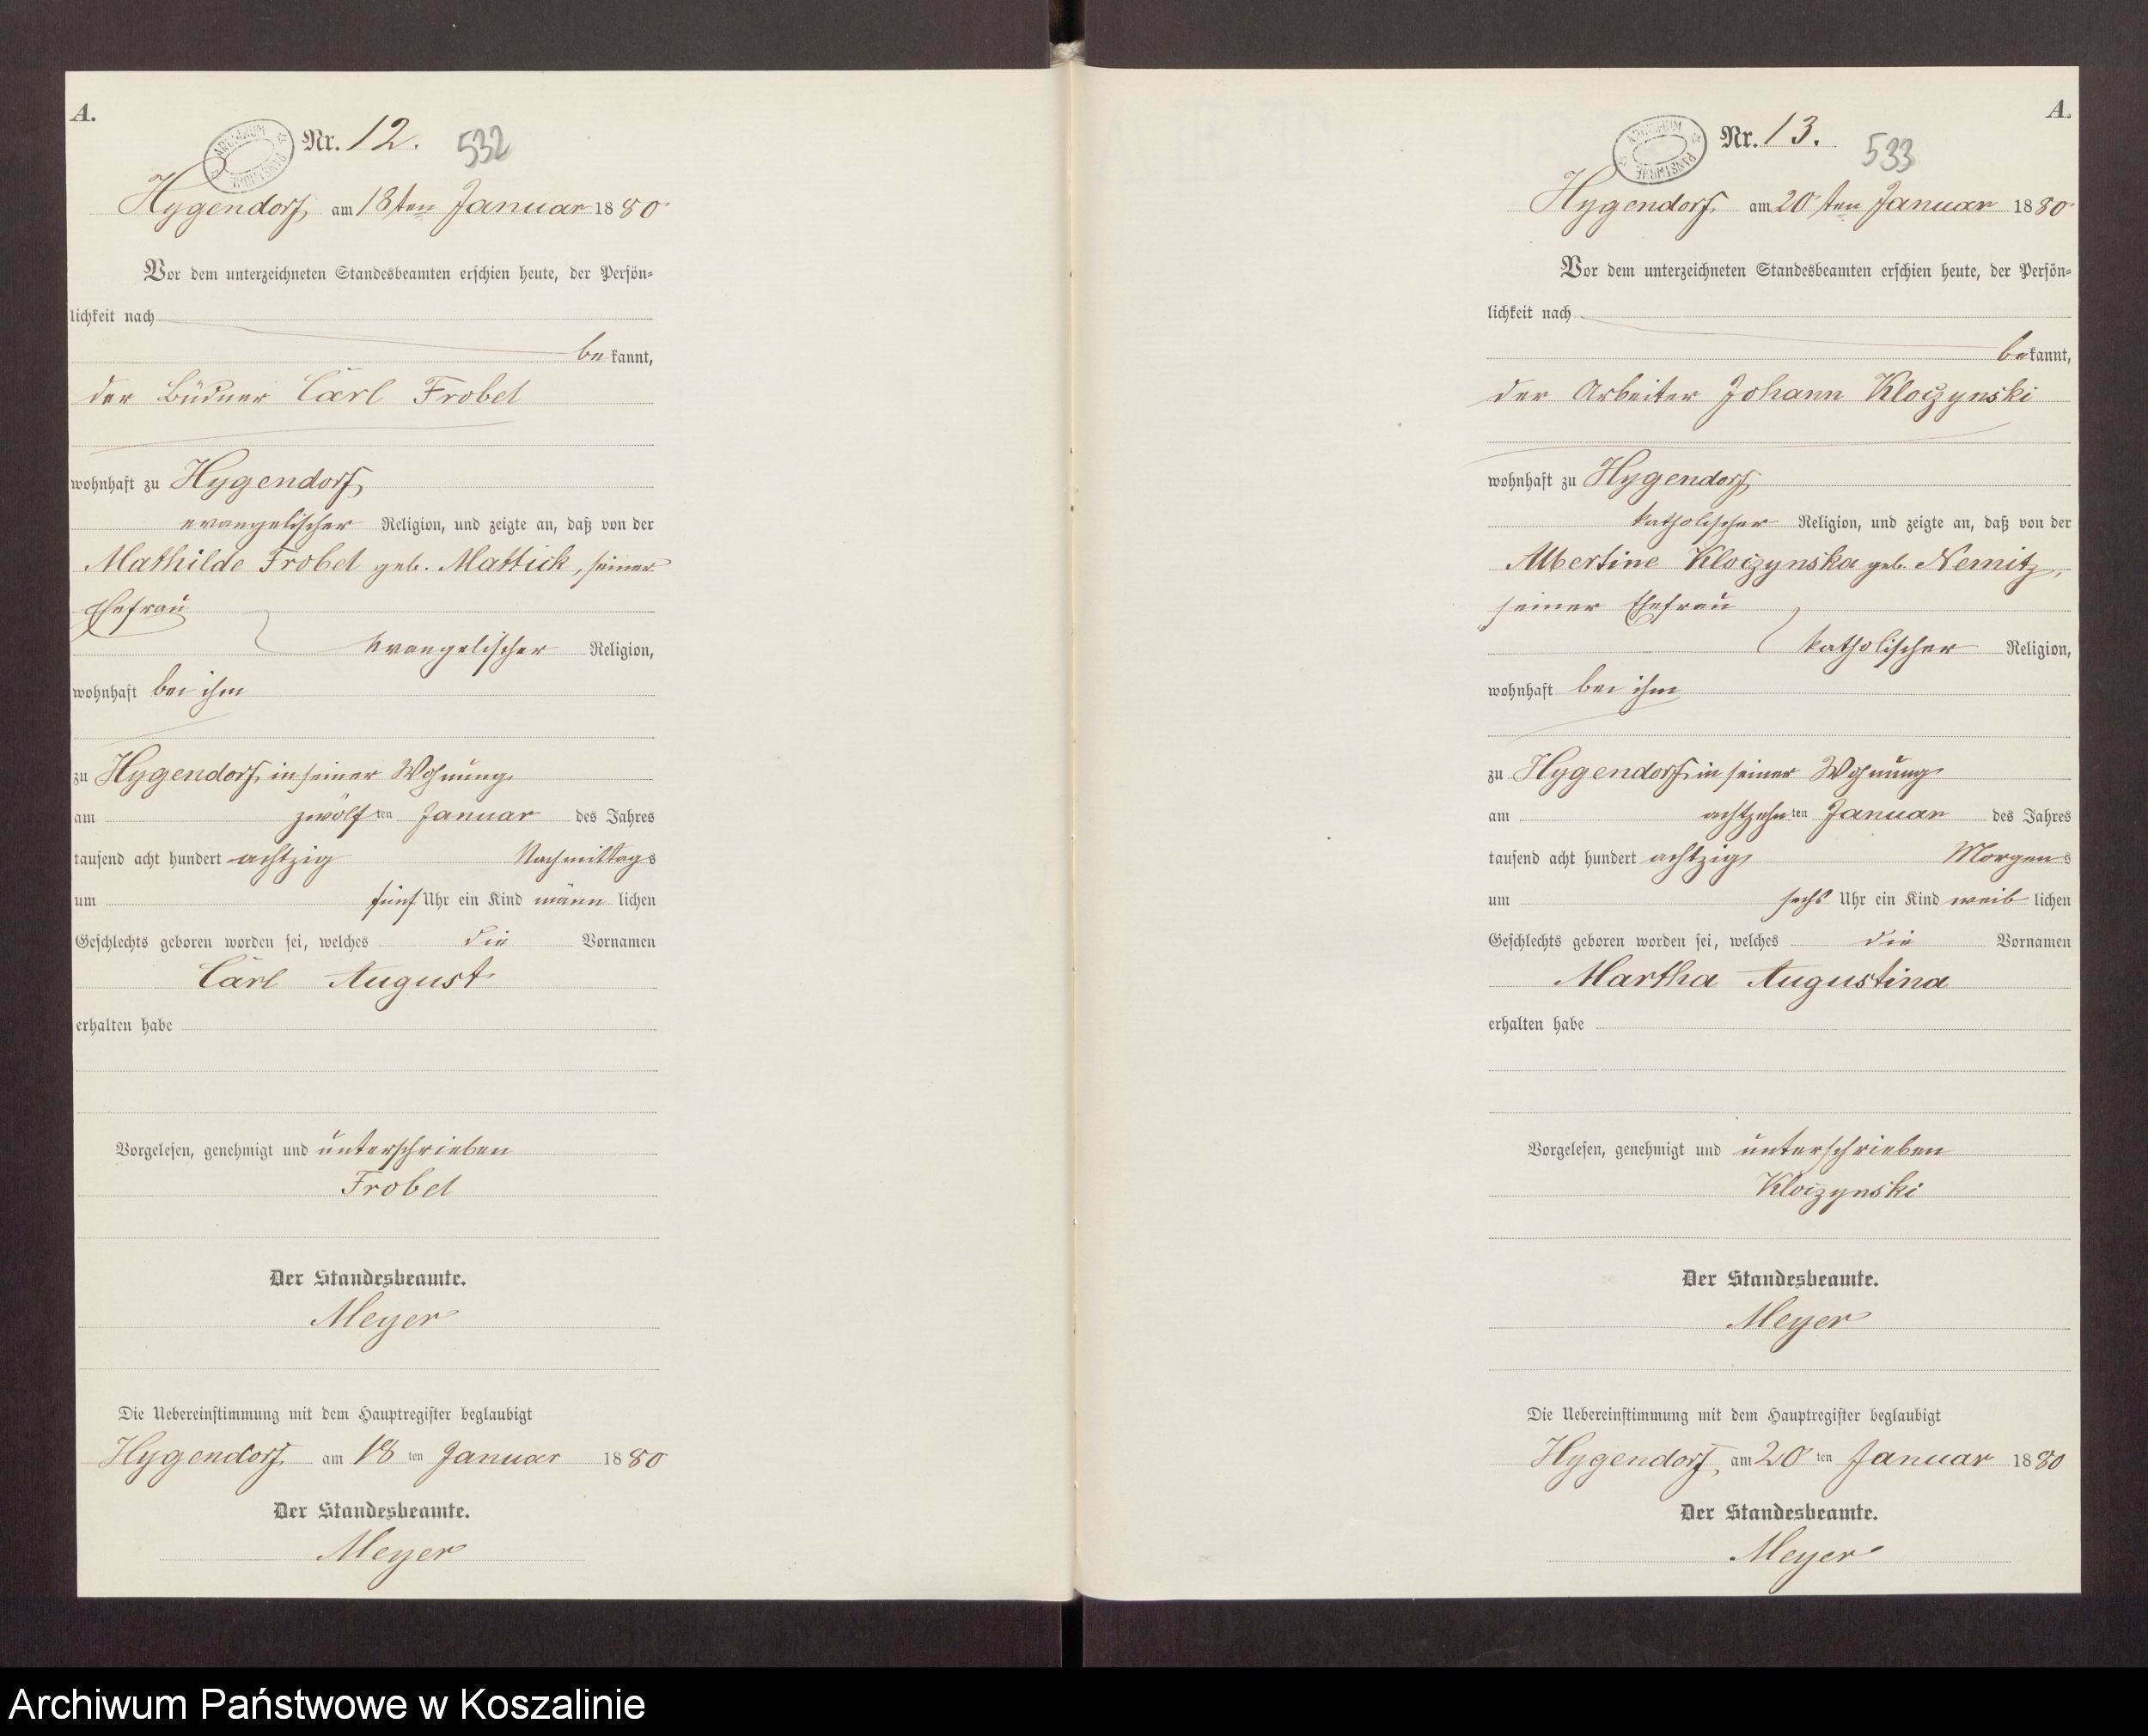 A.
Nr. 12.
532
Hygendorf, am 18ten Januar 1880
Vor dem unterzeichneten Standesbeamten erschien heute, der Persön-
lichkeit nach
bekannt,
der Büdner Carl Frobel
wohnhaft zu Hygendorf,
evangelischer Religion, und zeigte an, daß von der
Mathilde Frobel geb. Mattick, seiner
Ehefrau
evangelischer Religion,
wohnhaft bei ihm
zu Hygendorf, in seiner Wohnung
am zwölften Januar des Jahres
tausend acht hundert achtzig Nachmittags
um fünf Uhr ein Kind männlichen
Geschlechts geboren worden sei, welches die Vornamen
Carl August
erhalten habe
Vorgelesen, genehmigt und unterschrieben
Frobel
Der Standesbeamte.
Meyer
Die Uebereinstimmung mit dem Hauptregister beglaubigt
Hygendorf, am 18ten Januar 1880
Der Standesbeamte.
Meyer
A.
ARCHIWUM PAŃSTWOWE
Nr. 13.
533
Hygendorf, am 20ten Januar 1880
Vor dem unterzeichneten Standesbeamten erschien heute, der Persön-
lichkeit nach
bekannt,
der Arbeiter Johann Kloczynski
wohnhaft zu Hygendorf,
katholischer Religion, und zeigte an, daß von der
Albertine Kloczynska geb. Nemitz,
seiner Ehefrau
katholischer Religion,
wohnhaft bei ihm
zu Hygendorf, in seiner Wohnung
am achtzehnten Januar des Jahres
tausend acht hundert achtzig Morgens
um sechs Uhr ein Kind weiblichen
Geschlechts geboren worden sei, welches die Vornamen
Martha Augustina
erhalten habe
Vorgelesen, genehmigt und unterschrieben
Kloczynski
Der Standesbeamte.
Meyer
Die Uebereinstimmung mit dem Hauptregister beglaubigt
Hygendorf, am 20ten Januar 1880
Der Standesbeamte.
Meyer
Archiwum Państwowe w Koszalinie